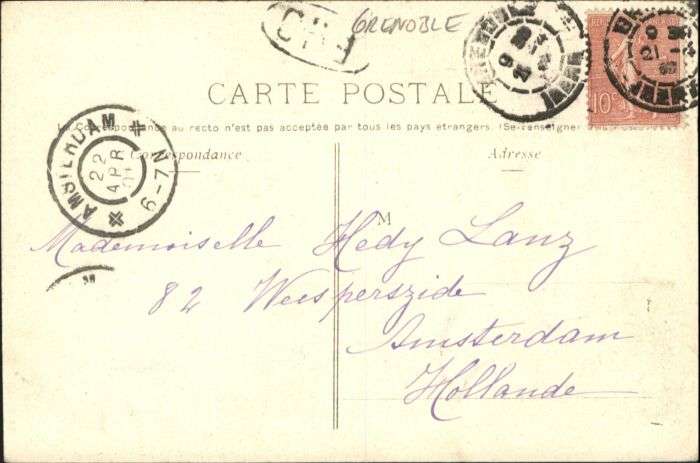 GRENOBLE
CARTE POSTALE
La Correspondance au recto n'est pas acceptée par tous les pays étrangers. (Se renseigner
Correspondance
Adresse
10c
AMSTERDAM
22
APR
6-7 N
M
Mademoiselle Hedy Lanz
82 Weesperszide
Amsterdam
Hollande